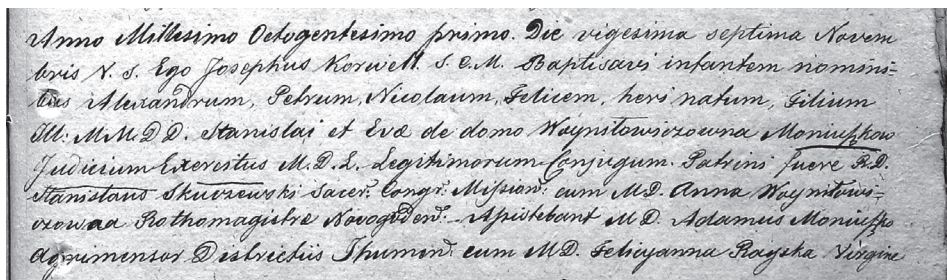 Anno Millesimo Octogentesimo primo. Die vigesima septima Novem
bris V. S. Ego Josephus Korwell S. C. M. Baptisavi infantem nomini=
bus Alexandrum, Petrum, Nicolaum, Felicem, heri natum, Filium
Ill: M.M.D.D. Stanislai et Evæ de domo Woyniłowiczowna Moniuszkow
Judicium Exercitus M.D.L. Legitimorum Conjugum. Patrini fuere R.D.
Stanislaus Skuczewski Sacer. Congr: Mission: cum M.D. Anna Woyniłowi=
czowna Rothomagistræ Novogrden: Assistebant M.D. Adamus Moniuszko
Agrimensor Districtus Ihumen. cum M.D. Felicyanna Rayska Virgine